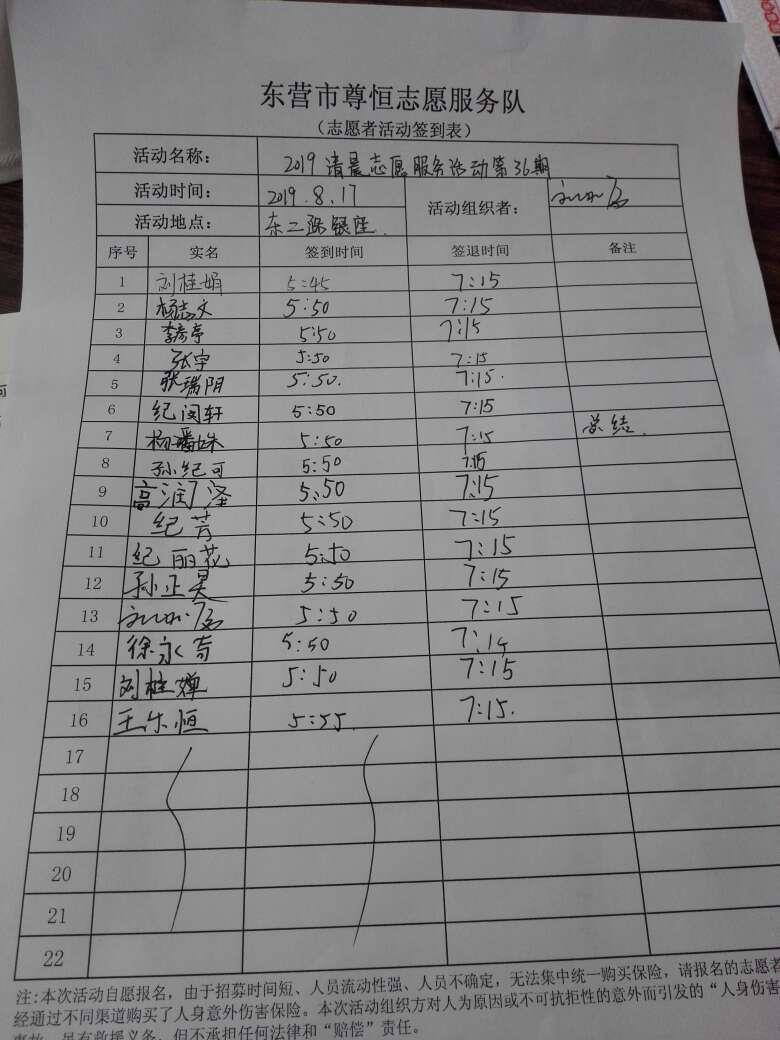 东营市尊恒志愿服务队
（志愿者活动签到表）
活动名称： 2019清晨志愿服务活动第36期
活动时间： 2019.8.17 活动组织者：
活动地点： 东二路银座.
序号 实名 签到时间 签退时间 备注
1 刘桂娟 5:45 7:15
2 杨志文 5:50 7:15
3 李彦亭 5:50 7:15
4 张宇 5:50 7:15
5 张瑞阴 5:50. 7:15.
6 纪闵轩 5:50 7:15
7 杨璠姝 5:50 7:15 总结.
8 孙纪可 5:50 7:15
9 高润泽 5:50 7:15
10 纪芳 5:50 7:15
11 纪丽花 5:50 7:15
12 孙正昊 5:50 7:15
13 5:50 7:15
14 徐永奇 5:50 7:15
15 刘桂婵 5:50 7:15
16 王乐恒 5:55. 7:15.
17
18
19
20
21
22
注:本次活动自愿报名，由于招募时间短、人员流动性强、人员不确定，无法集中统一购买保险，请报名的志愿者
经通过不同渠道购买了人身意外伤害保险。本次活动组织方对人为原因或不可抗拒性的意外而引发的“人身伤害
但不承担任何法律和“赔偿”责任。